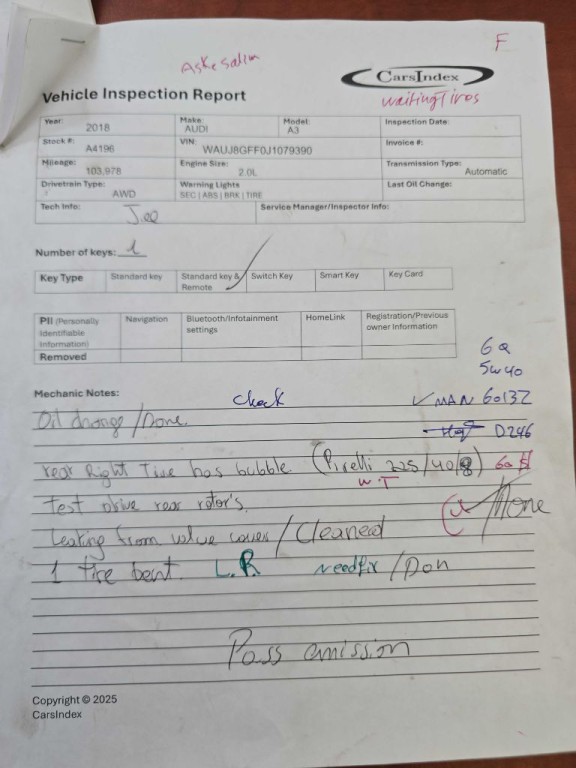 F
Ask Salim
CarsIndex
Vehicle Inspection Report
waiting Tires
Year: 2018 Make: AUDI Model: A3 Inspection Date:
Stock #: A4196 VIN: WAUJ8GFF0J1079390 Invoice #:
Mileage: 103,978 Engine Size: 2.0L Transmission Type: Automatic
Drivetrain Type: AWD Warning Lights SEC | ABS | BRK | TIRE Last Oil Change:
Tech Info: Joe Service Manager/Inspector Info:
Number of keys: 1
Key Type Standard key Standard key & Remote Switch Key Smart Key Key Card
PII (Personally Identifiable Information) Navigation Bluetooth/Infotainment settings HomeLink Registration/Previous owner Information
Removed
6Q
5w40
Mechanic Notes: check MAN 6013Z
Oil change / Done.
D246
rear Right Tire has bubble (Pirelli 225/40/8)
WT
Test drive rear rotor's.
Leaking from valve cover / Cleaned
1 tire bent. L.R. Needfix / Don
Pass emission
Copyright © 2025
CarsIndex